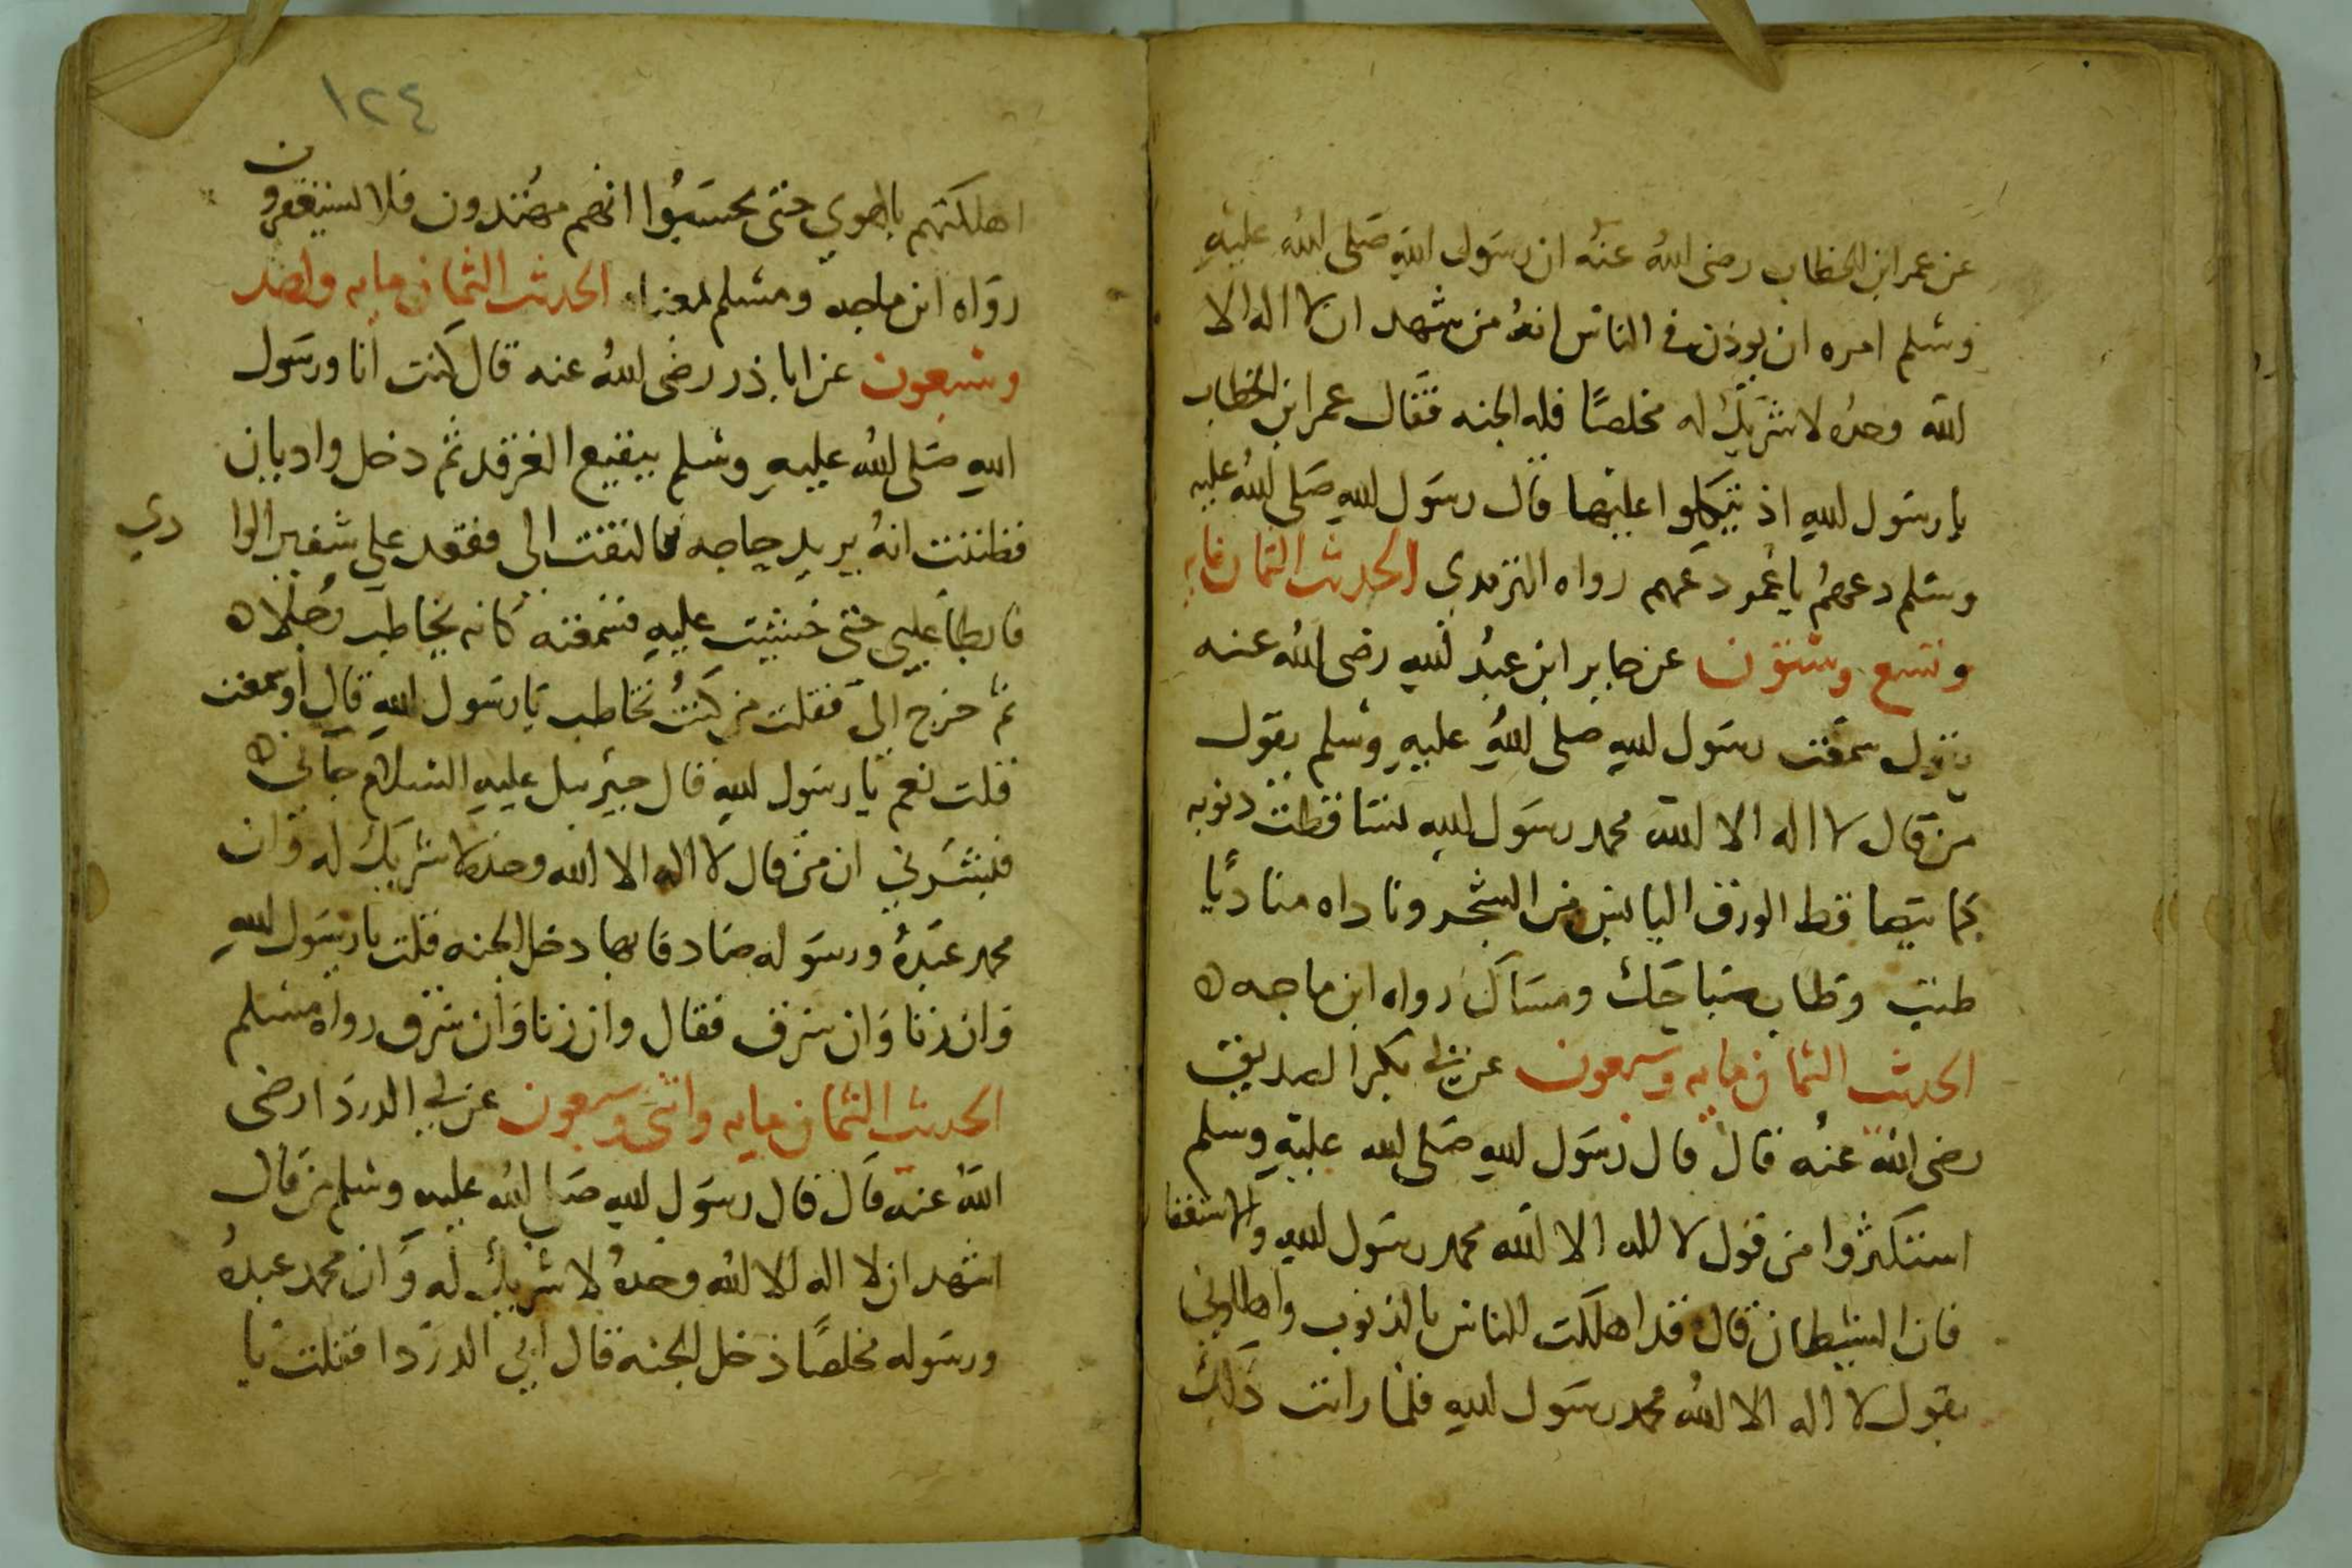 عن عمر ابن الخطاب رضى الله عنه ان رسول الله صلى الله عليه
وسلم امره ان يوذن في الناس انه من شهد ان لا اله الا
الله وحده لا شريك له مخلصًا فله الجنه فقال عمر ابن الخطاب
يا رسول الله اذ يتكلوا عليها قال رسول الله صلى الله عليه
وسلم دعهم يا عمر دعهم رواه الترمدي الحديث الثمان مايه
وتسع وستون عن جابر ابن عبد الله رضى الله عنه
يقول سمعت رسول الله صلى الله عليه وسلم يقول
من قال لا اله الا الله محمد رسول الله تساقطت دنوبه
كما يتصاقط الورق اليابس من الشجر وناداه مناديًا
طبت وطاب صباحك ومساك رواه ابن ماجه
الحديث الثمان مايه وسبعون عن ابي بكر الصديق
رضى الله عنه قال قال رسول الله صلى الله عليه وسلم
استكثروا من قول لا اله الا الله محمد رسول الله والاستغفا
فان الشيطان قال قد اهلكت الناس بالذنوب واهلكوني
بقول لا اله الا الله محمد رسول الله فلما رايت ذلك
١٢٤
اهلكتهم بالهوي حتى يحسبوا انهم مهتدون فلا يستغفرون
رواه ابن ماجه ومسلم الحديث الثمان مايه واحد
وسبعون عن ابا ذر رضى الله عنه قال كنت انا ورسول
الله صلى الله عليه وسلم ببقيع الغرقد ثم دخل واديان
فظننت انه يريد حاجه فالتفت الى فقعد علي شفير الوا دي
فابطا عليى حتى خشيت عليه فسمعته كانه يخاطب رجلا
ثم خرج الىّ فقلت من كنتُ تخاطب يا رسول الله قال اوسمعت
قلت نعم يا رسول الله قال جبريل عليه السلام جاني
فبشرني ان من قال لا اله الا الله وحده لا شريك له وان
محمد عبده ورسوله صادقا بها دخل الجنه قلت يا رسول الله
وان زنا وان سرق فقال وان زنا وان سرق رواه مسلم
الحديث الثمان مايه واثنى وسبعون عن ابي الدردا رضى
الله عنه قال قال رسول الله صلى الله عليه وسلم من قال
اشهد ان لا اله الا الله وحده لا شريك له وان محمد عبده
ورسوله مخلصًا دخل الجنه قال ابي الدردا فقلت يا